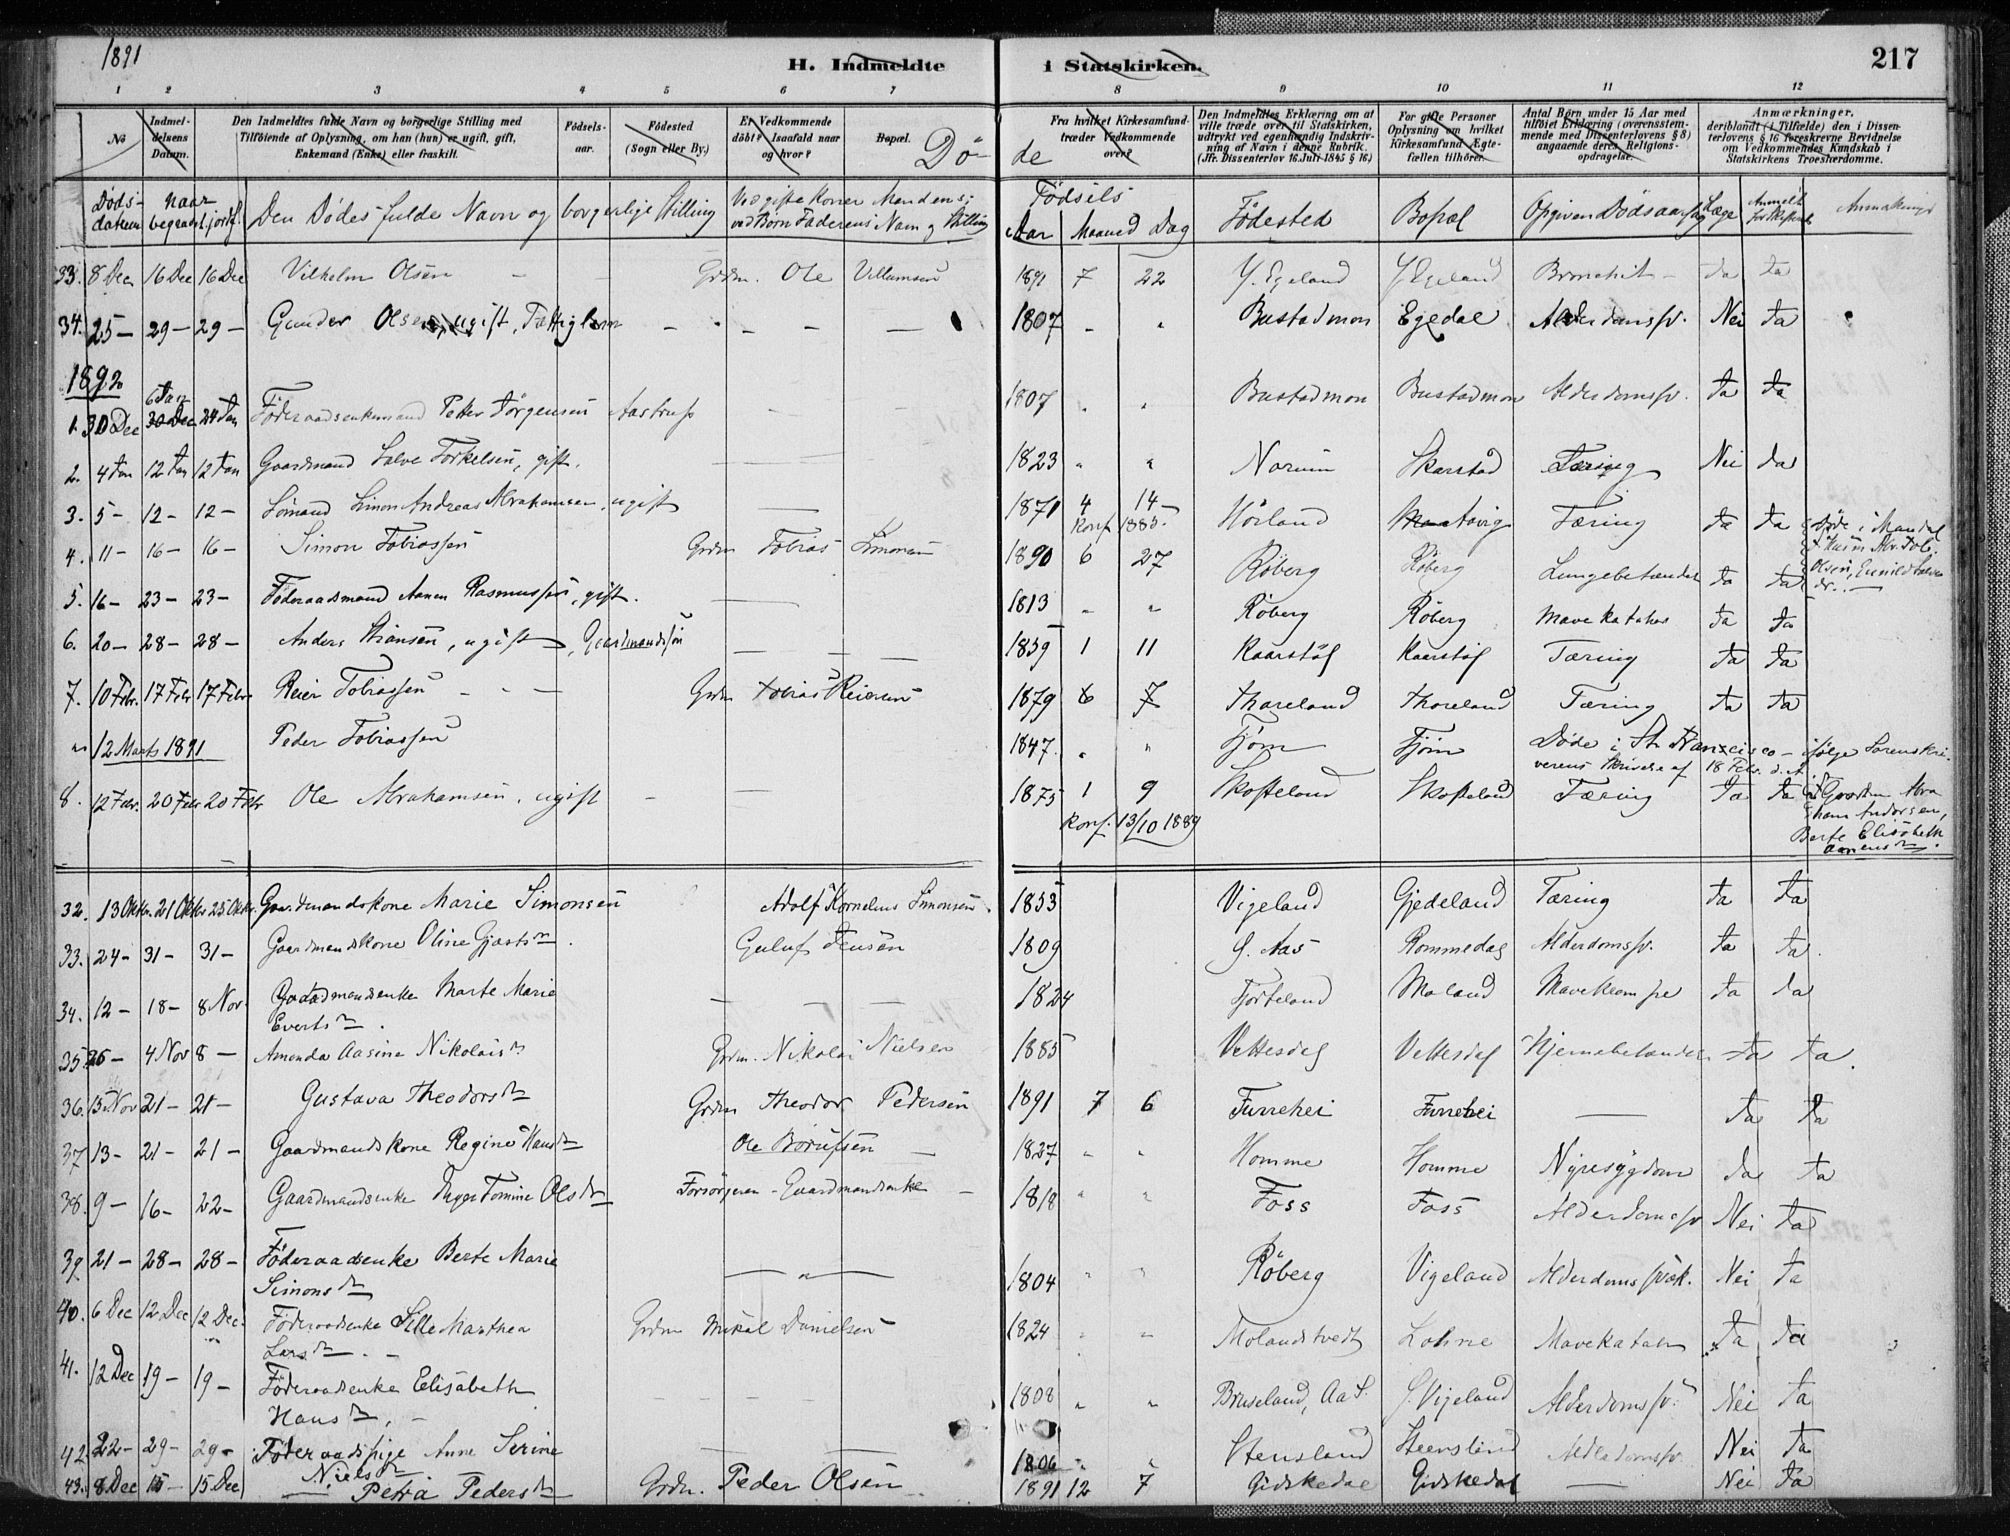 1891
H. Indmeldte i Statskirken.
217
1 2 3 4 5 6 7 8 9 10 11 12
No
Indmeldelsens Datum.
Den Indmeldtes fulde Navn og borgerlige Stilling med Tilføiende af Oplysning, om han (hun) er ugift, gift, Enkemand (Enke) eller fraskilt.
Fødselsaar.
Fødested (Sogn eller By.)
Er Vedkommende døbt? Isaafald naar og hvor?
Bopæl.
Fra hvilket Kirkesamfund træder Vedkommende over?
Den Indmeldtes Erklæring om at ville træde over til Statskirken, udtrykt ved egenhændig Indskrivning af Navn i denne Rubrik. (Jfr. Dissenterlov 16. Juli 1845 § 16)
For gifte Personer Oplysning om hvilket Kirkesamfund Ægtefællen tilhører.
Antal Børn under 15 Aar med tilføiet Erklæring (overensstemmende med Dissenterlovens § 8) angaaende deres Religionsopdragelse.
Anmærkninger, deriblandt (i Tilfælde) den i Dissenterlovens § 16 foreskrevne Bevidnelse om Vedkommendes Kundskab i Statskirkens Troeslærdomme.
Dö- de
Döds-datum naar begravet jordf. Den Dödes fulde Navn og borgerlige Stilling Ved gifte Koner Mandens; ved Börn Faderens Navn og Stilling Födsels Aar Maaned Dag Födested Bopæl Opgiven Dödsaarsag Læge Anmeldt for Skifteret Anmærkning
33. 8 Dec 16 Dec 16 Dec Vilhelm Olsen — — Grdm. Ole Villumsen 1891 7 22 Y. Egeland Y Egeland Bronchit - Ja Ja
34. 25 — 29 — 29 — Gunder Olsen, ugift, Fattiglem 1807 " " Bustadmon Egedal Alderdomssv. Nei Ja
1892
1. 30 Dec 6 Jan 30 Dec 24 Jan Föderaadsenkemand Peter Jörgensen Aastrup 1807 " " Bustadmon Bustadmon Alderdomssv. Ja Ja
2. 4 Jan 12 Jan 12 Jan Gaardmand Salve Torkelsen, gift. 1823 " " Norum Skarstad Tæring Nei Ja
3. 5 — 12 — 12 — Sömand Simon Andreas Abrahamsen, ugift 1871 4 14 Hörland Tæring Ja Ja
Konf. 1885.
4. 11 — 16 — 16 — Simon Tobiassen Grdm Tobias Simonsen 1890 6 27 Röberg Röberg Lungebetændel Ja Ja
Döde i Mandal
5. 16 — 23 — 23 — Föderaadsmand Aanen Rasmussen, gift. 1813 " " Röberg Röberg Mavekatahr Ja Ja
6. 20 — 28 — 28 — Anders Stiansen, ugift, Gaardmandssön 1859 1 11 Kaarstöl Kaarstöl Tæring Ja Ja
7. 10 Febr. 17 Febr 17 Febr Reier Tobiassen — — Grdm Tobias Reiersen 1879 6 7 Thoreland Thoreland Tæring Ja Ja
" 12 Marts 1891 Peder Tobiassen 1847. " " Fjöm Fjöm Döde i St Franzisco — ifölge Sorenskriverens Skrivelse af 18 Febr. d. A.
8. 12 Febr. 20 Febr 20 Febr Ole Abrahamsen, ugift 1875 1 9 Skofteland Skofteland Tæring Ja Ja Gaardm Abraham Andersen, Berte Elisabeth Aanensdtr.
Konf. 13/10 1889
32. 13 Oktr. 21 Oktr 25 Oktr. Gaardmandskone Marie Simonsen Adolf Kornelius Simonsen. 1853 Vigeland Gjedeland Tæring Ja Ja
33. 24 — 31 — 31 — Gaardmandskone Oline Gjertsdtr. Guluf Jensen 1809 S. Aas Rommedag Alderdomssv. Ja Ja.
34. 12 — 18 — 8 Nov. Gaardmandsenke Marte Marie Evertsdtr. 1824 Fjorteland Moland Mavekrampe Ja Ja
35. 26 — 4 Nov 8 — Amanda Aasine Nikolaisdtr Grdm. Nikolai Nielsen 1885 Vettesdal Vettesdal Hjernebetændel Ja Ja.
36. 15 Nov 21 — 21 — Gustava Theodorsdtr Grdm Theodor Pedersen 1891 7 6 Furrehei Furrehei — Ja Ja
37 13 — 21 — 21 — Gaardmandskone Regine Hansdtr Ole Börufsen 1827 " " Homme Homme Nyresygdom Ja Ja
38. 9 — 16 — 22 — Gaardmandsenke Inger Tomine Olsdtr Forsörgeren - Gaardmandsenke 1818 " " Foss Foss Alderdomssv Nei Ja
39 21 — 28 — 28 — Föderaadsenke Berte Marie Simonsdtr 1804 " " Röberg Vigeland Alderdomssvæk. Nei Ja
40. 6 Dec 12 Dec 12 Dec. Föderaadsenke Sille Marthea Larsdtr. — Grdm Mikal Danielsen 1824 " " Molandstvedt Lohne Mavekatahr Ja Ja
41. 12 Dec 19 — 19 — Föderaadsenke Elisabeth Hansdtr. — 1808 " " Bruseland, Aa S. S. Vigeland Alderdomssv. Nei Ja
42. 22 — 29 — 29 — Föderaadspige Anne Serine Nielsdtr 1806 " " Stensland Steensland Alderdomssv. Nei Ja
43. 8 Dec 15 — 15 Dec Petra Pedersdtr Grdm. Peder Olsen 1891 12 7 Gidskedal Gidskedal — Nei Ja